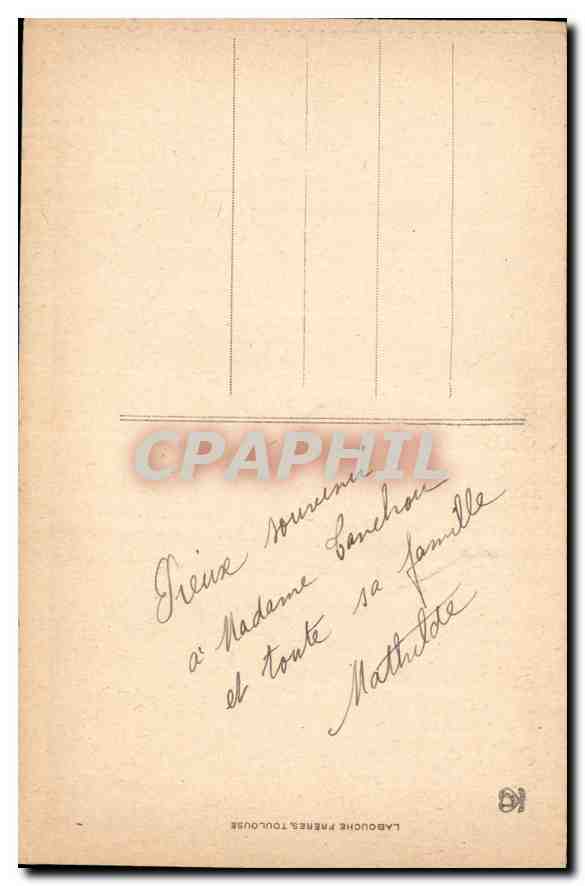 CPAPHIL
souvenir
à Madame
et toute sa famille
Mathilde
LABOUCHE FRÈRES, TOULOUSE